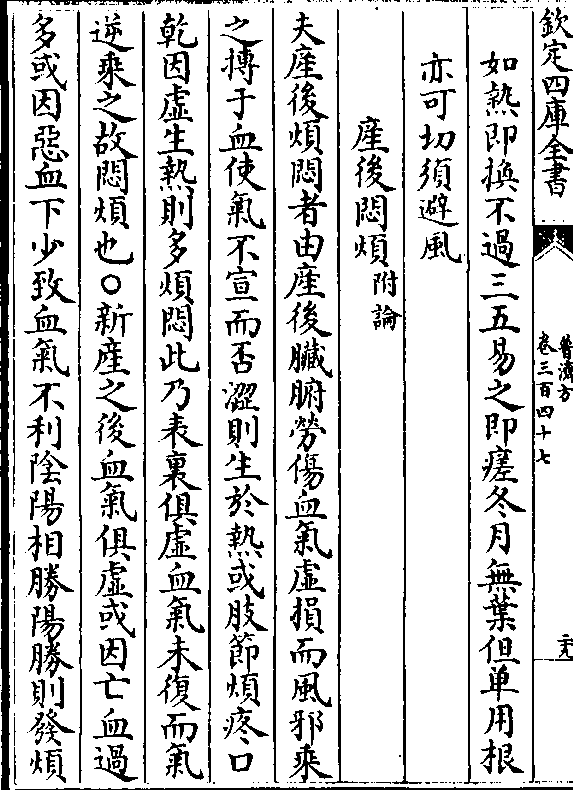 欽定四庫全書
普濟方
卷三百四十七
如熱即換不過三五易之即瘥冬月無葉但单用根
亦可切須避風
產後悶煩附論
夫產後煩悶者由產後臟腑勞傷血氣虛損而風邪乘
之搏于血使氣不宣而否澀則生於熱或肢節煩疼口
乾因虛生熱則多煩悶此乃表裏俱虛血氣未復而氣
逆乘之故悶煩也○新產之後血氣俱虛或因亡血過
多或因惡血下少致血氣不利陰陽相勝陽勝則發煩